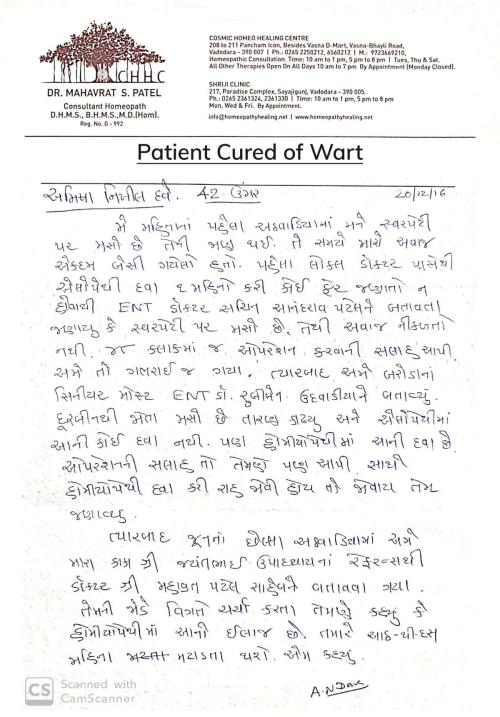 CHHC
DR. MAHAVRAT S. PATEL
Consultant Homeopath
D.H.M.S., B.H.M.S.,M.D.(Hom).
Reg. No. G - 992
COSMIC HOMEO HEALING CENTRE
208 to 211 Pancham Icon, Besides Vasna D-Mart, Vasna-Bhayli Road,
Vadodara - 390 007 | Ph.: 0265 2250212, 6560212 | M.: 9723669210,
Homeopathic Consultation. Time: 10 am to 1 pm, 5 pm to 8 pm | Tues, Thu & Sat.
All Other Therapies Open On All Days 10 am to 7 pm By Appointment (Monday Closed).
SHRIJI CLINIC
217, Paradise Complex, Sayajigunj, Vadodara - 390 005.
Ph.: 0265 2361324, 2361330 | Time: 10 am to 1 pm, 5 pm to 8 pm
Mon, Wed & Fri. By Appointment.
info@homeopathyhealing.net | www.homeopathyhealing.net
Patient Cured of Wart
અમિષા નિખીલ દવે. 42 ઉંમર 20/12/16
મે મહિનાનાં પહેલા અઠવાડિયામાં મને સ્વરપેટી
પર મસો છે તેની જાણ થઈ. તે સમયે મારો અવાજ
એકદમ બેસી ગયેલો હતો. પહેલા લોકલ ડોક્ટર પાસેથી
એલોપેથી દવા ૨ મહિનો કરી કોઈ ફેર જણાતો ન
હોવાથી ENT ડોક્ટર સચિન આનંદરાવ પટેલને બતાવતા
જણાયુ કે સ્વરપેટી પર મસો છે. તેથી અવાજ નીકળતો
નથી. ૪૮ કલાકમાં જ ઓપરેશન કરવાની સલાહ આપી.
અમે તો ગભરાઈ જ ગયા. ત્યારબાદ અમે બરોડાનાં
સિનીયર મોસ્ટ ENT ડૉ. રુબીબેન ઉદવાડીયાને બતાવ્યું.
દૂરબીનથી જોતા મસો છે તારણ કાઢ્યુ અને એલોપેથીમાં
આની કોઈ દવા નથી. પણ હોમીયોપેથીમાં આની દવા છે
ઓપરેશનની સલાહ તો તેમણે પણ આપી. સાથે
હોમીયોપેથી દવા કરી રાહ જોવી હોય તો જોવાય તેમ
જણાવ્યુ.
ત્યારબાદ જૂનનાં છેલ્લા અઠવાડિયામાં અમે
મારા કાકા શ્રી જયંતભાઈ ઉપાધ્યાયનાં રેફરન્સથી
ડોક્ટર શ્રી મહાવ્રત પટેલ સાહેબને બતાવવા ગયા.
તેમની જોડે વિગતે ચર્ચા કરતા તેમણે કહ્યું કે
હોમીયોપેથીમાં આની ઈલાજ છે. તમારે આઠ-થી-દસ
મહિના મટાડતા થશે. એમ કહ્યુ.
A.N Dave
CS Scanned with
CamScanner